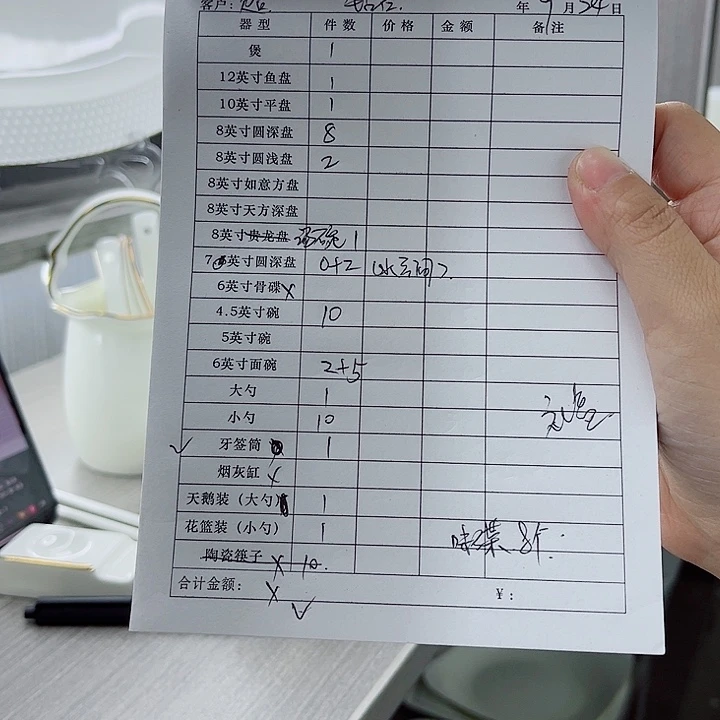 客户：
年 9 月 24 日
器型 件数 价格 金额 备注
煲 1
12英寸鱼盘 1
10英寸平盘 1
8英寸圆深盘 8
8英寸圆浅盘 2
8英寸如意方盘
8英寸天方深盘
8英寸贵龙盘 汤碗 1
7英寸圆深盘 0+2
6英寸骨碟 x
4.5英寸碗 10
5英寸碗
6英寸面碗 2+5
大勺 1
小勺 10
✓ 牙签筒 1
烟灰缸 x
天鹅装（大勺） 1
花篮装（小勺） 1 味碟 8个
陶瓷筷子 X 10
合计金额： X ✓ ¥：